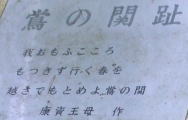 鶯の関趾
我おもふこころ
もつきず行く春を
越さでもとめよ鶯の関
康資王母 作